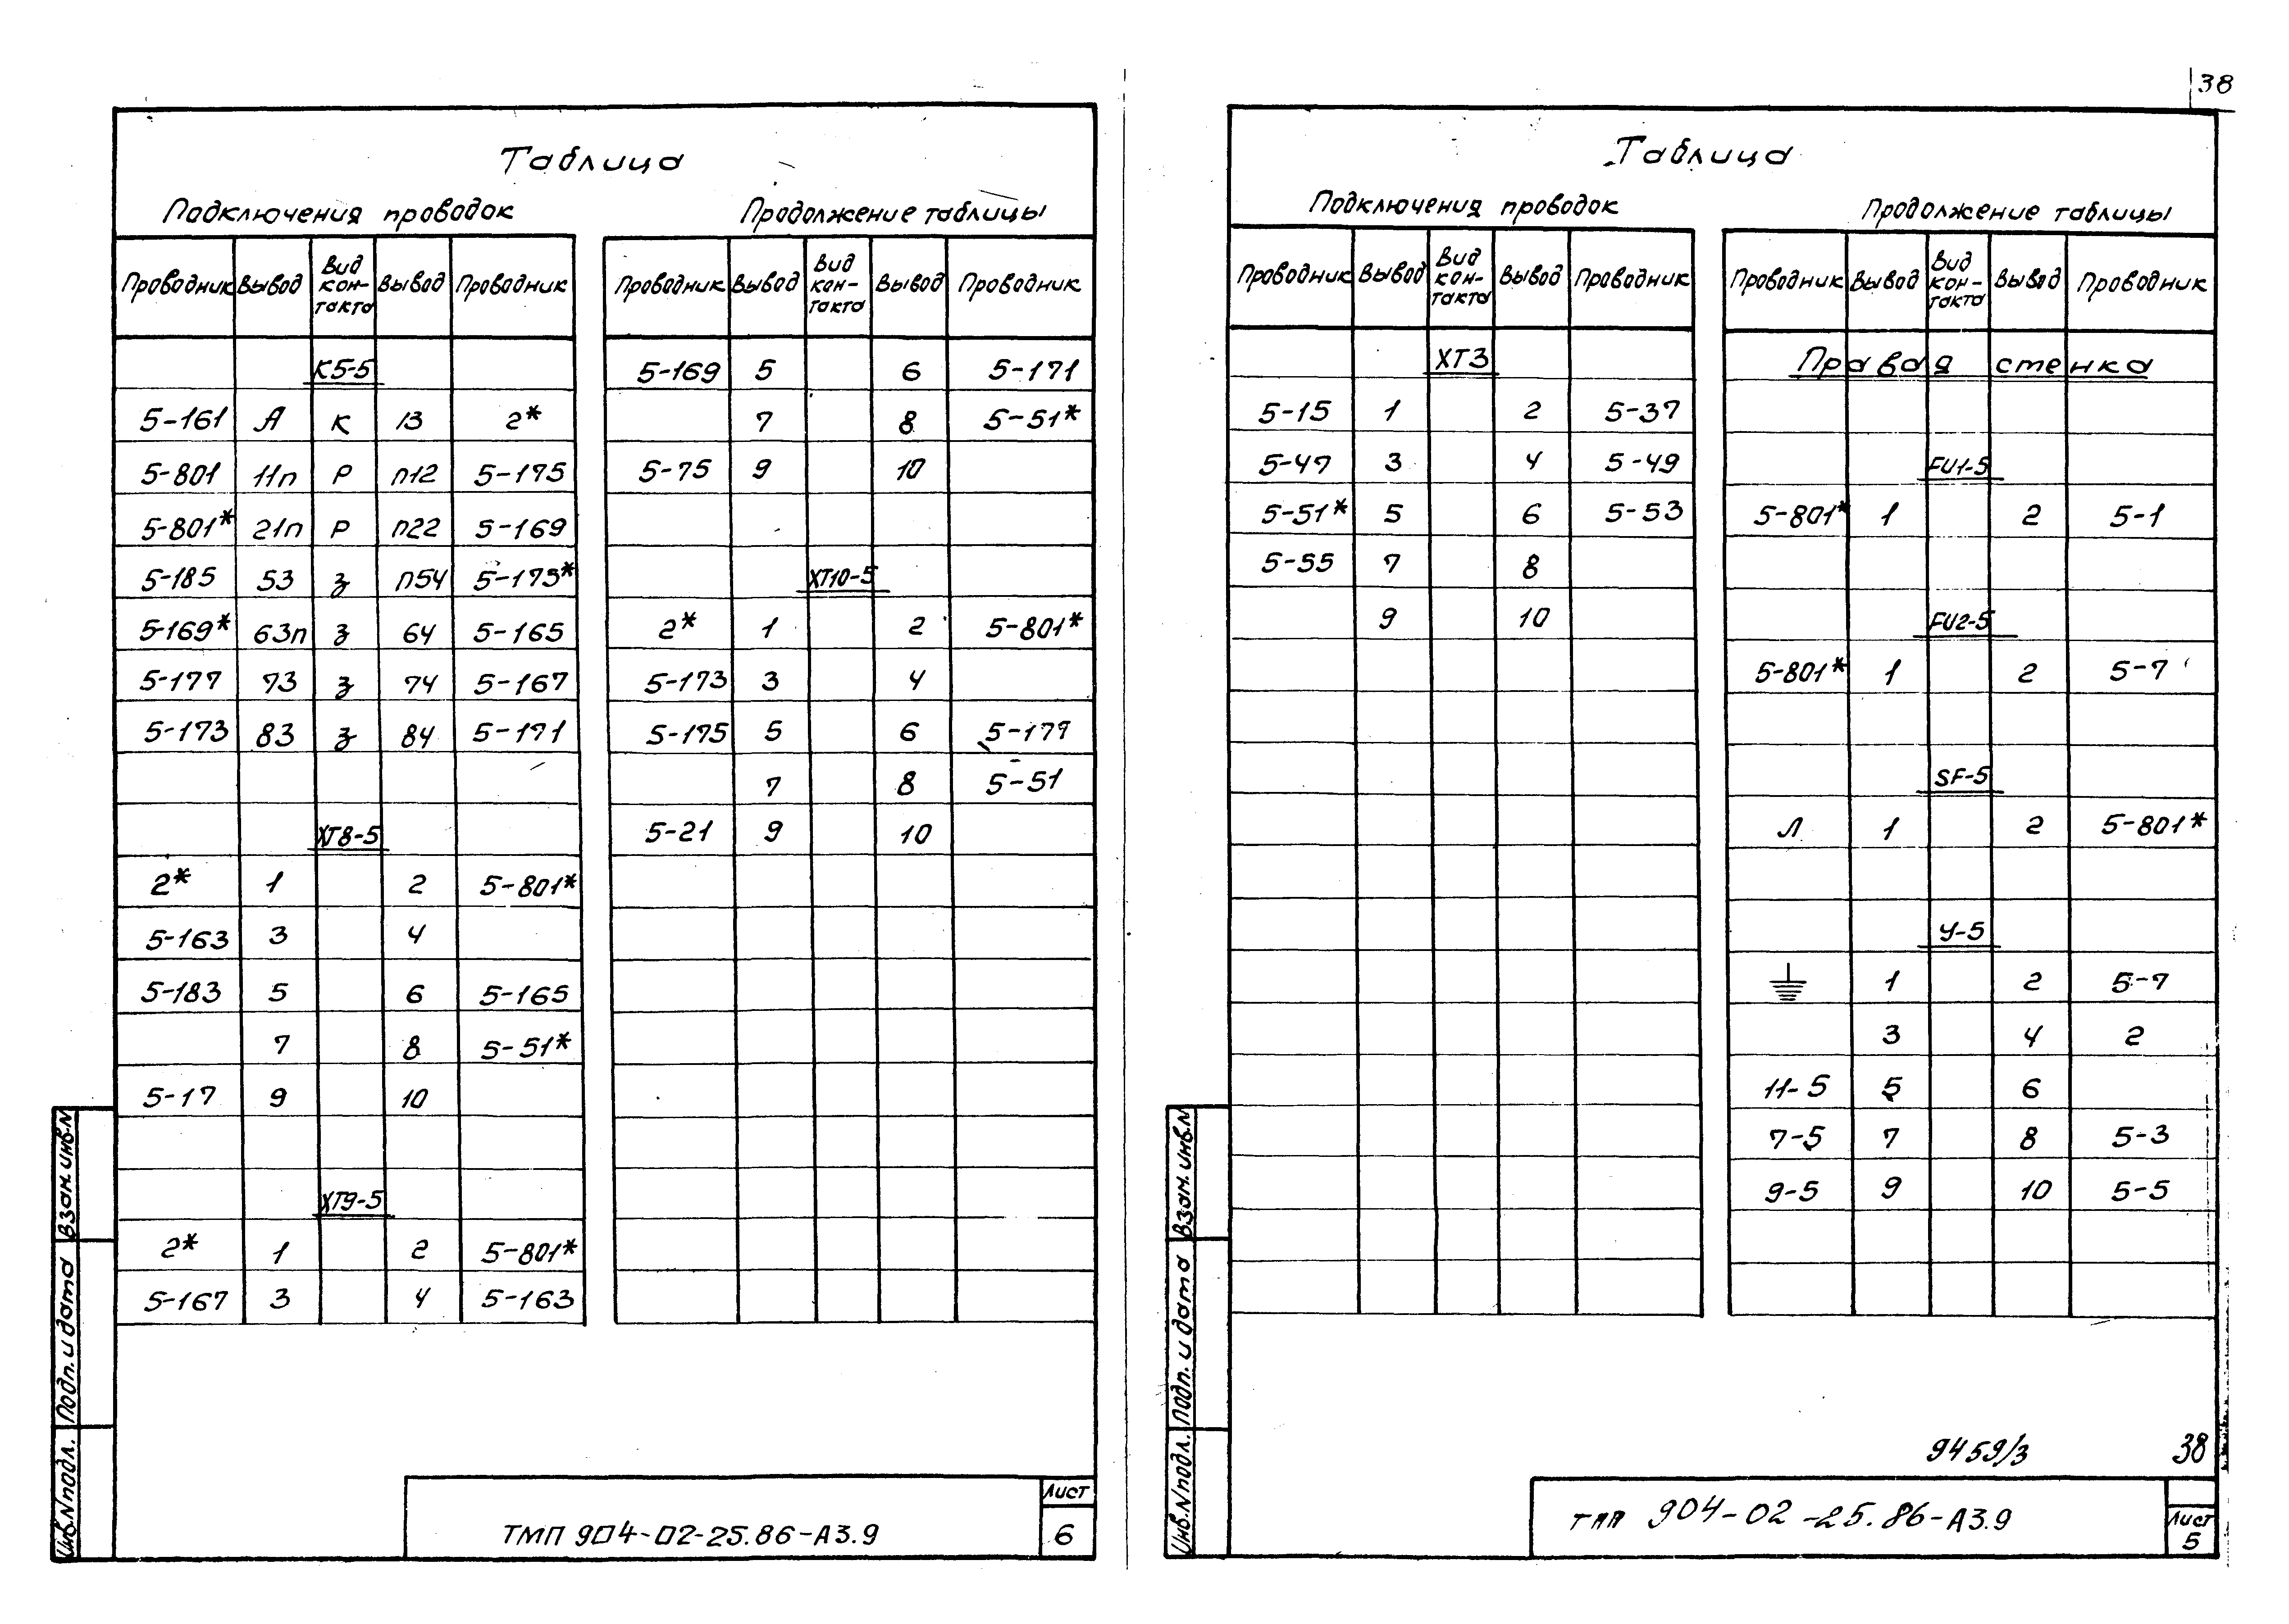 38
Таблица
Подключения проводок
Продолжение таблицы
Проводник Вывод Вид кон-такта Вывод Проводник
К5-5
5-161 А К 13 2*
5-801 11п Р п12 5-175
5-801* 21п Р п22 5-169
5-185 53 з п54 5-175*
5-169* 63п з 64 5-165
5-177 73 з 74 5-167
5-173 83 з 84 5-171
ХТ8-5
2* 1 2 5-801*
5-163 3 4
5-183 5 6 5-165
7 8 5-51*
5-17 9 10
ХТ9-5
2* 1 2 5-801*
5-167 3 4 5-163
Проводник Вывод Вид кон-такта Вывод Проводник
5-169 5 6 5-171
7 8 5-51*
5-75 9 10
ХТ10-5
2* 1 2 5-801*
5-173 3 4
5-175 5 6 5-177
7 8 5-51
5-21 9 10
Взам. инв. N
Подп. и дата
Инв. N подл.
ТМП 904-02-25.86-А3.9
Лист
6
Таблица
Подключения проводок
Продолжение таблицы
Проводник Вывод Вид кон-такта Вывод Проводник
ХТ3
5-15 1 2 5-37
5-47 3 4 5-49
5-51* 5 6 5-53
5-55 7 8
9 10
Проводник Вывод Вид кон-такта Вывод Проводник
Правая стенка
FU1-5
5-801* 1 2 5-1
FU2-5
5-801* 1 2 5-7
SF-5
Л 1 2 5-801*
У-5
1 2 5-7
3 4 2
11-5 5 6
7-5 7 8 5-3
9-5 9 10 5-5
Взам. инв. N
Подп. и дата
Инв. N подл.
9459/3 38
ТМП 904-02-25.86-А3.9
Лист
5